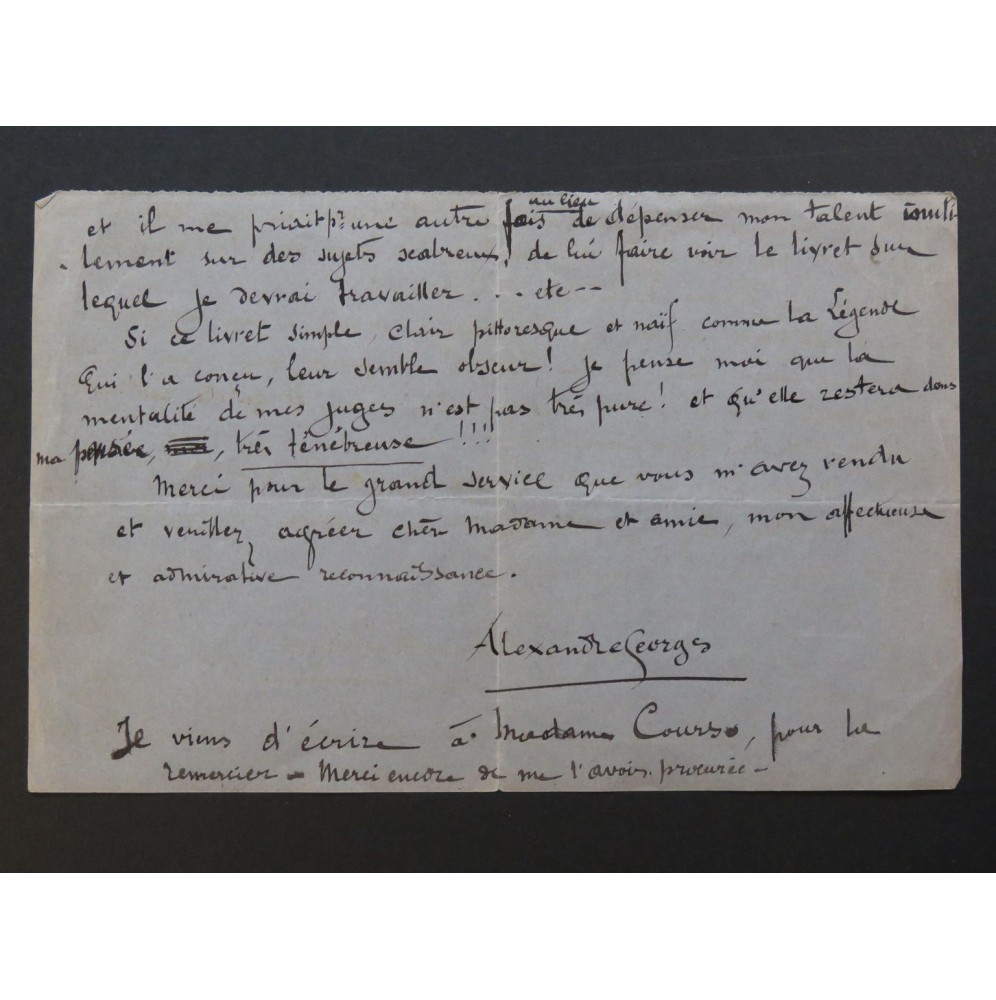 au lieu
et il me priait pr une autre fois de dépenser mon talent inuti
-lement sur des sujets scabreux, de lui faire voir le livret sur
lequel je devrai travailler . . . etc --
Si ce livret simple, clair pittoresque et naïf comme la Légende
Qui l'a conçu, leur semble obscur ! je pense moi que la
mentalité de mes juges n'est pas très pure ! et qu'elle restera dans
ma pensée, , très ténébreuse !!!
Merci pour le grand service que vous m'avez rendu
et veuillez agréer chère Madame et amie, mon affectueuse
et admirative reconnaissance.
Alexandre Georges
Je viens d'écrire à Madame , pour la
remercier - Merci encore de me l'avoir procurée -